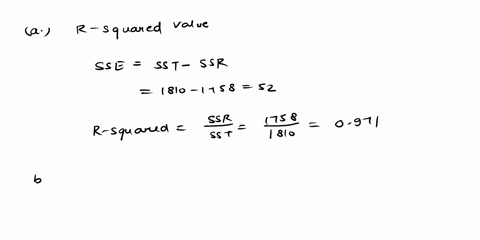 (a.) R-squared value
SSE = SST - SSR
= 1810 - 1758 = 52
R-squared = SSR/SST = 1758/1810 = 0.971
b